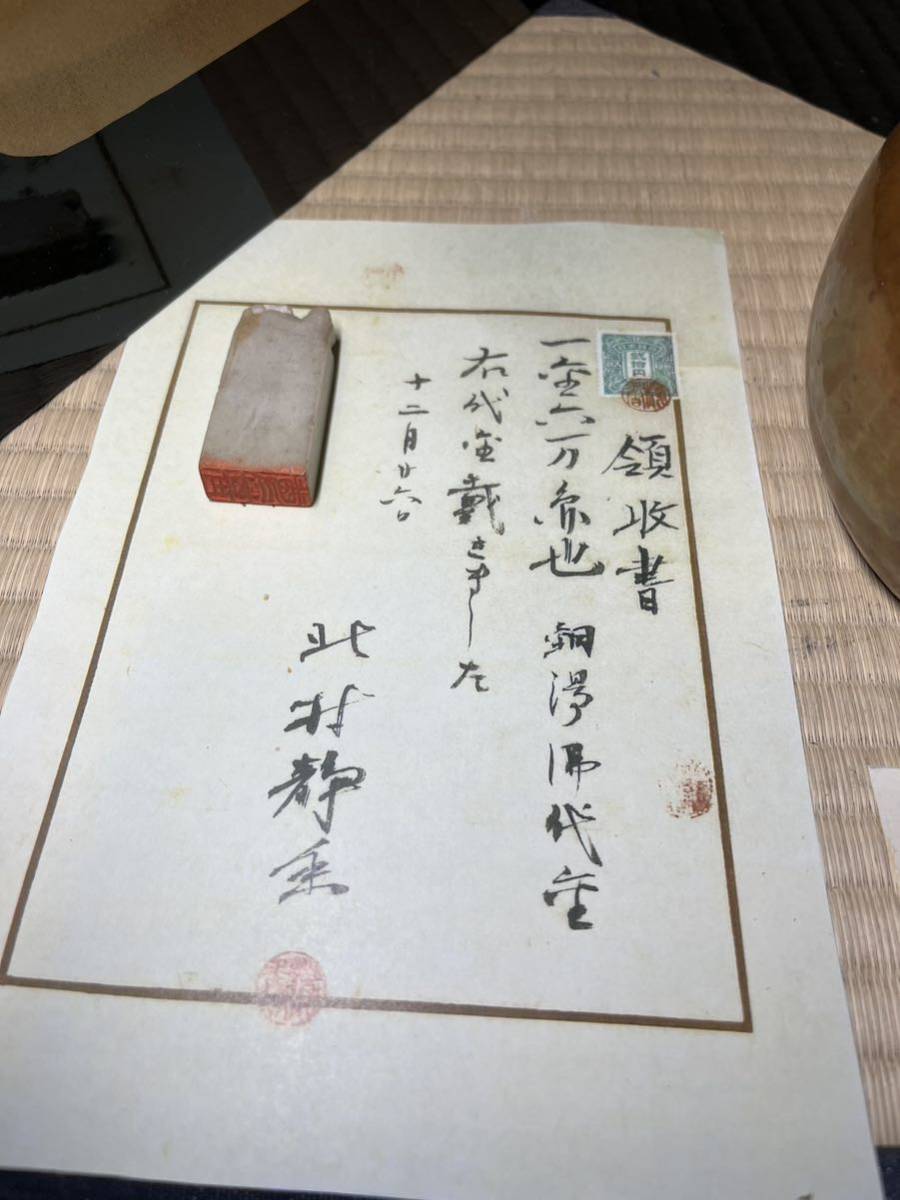 領收書
一金六万余也 銅湯沸代金
右代金戴きました
十二月廿六日
北村静香
貳拾円